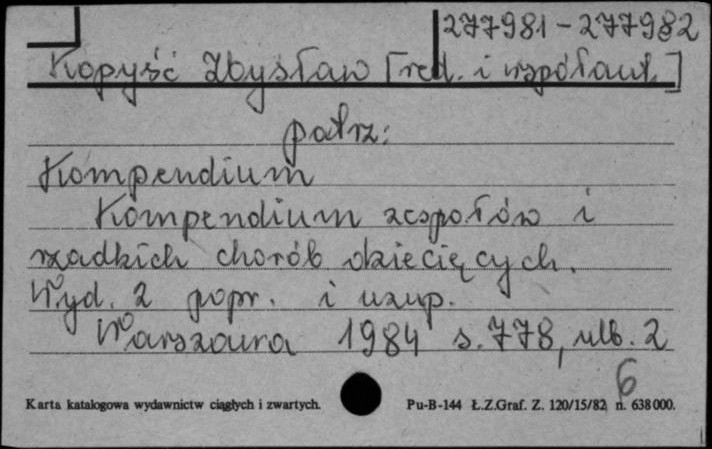 277981-277982
Kopyść Zbysław [red. i współaut.]
patrz:
Kompendium
Kompendium zespołów i
rzadkich chorób dziecięcych.
Wyd. 2 popr. i uzup.
Warszawa 1984 s. 778, nlb. 2
6
Karta katalogowa wydawnictw ciągłych i zwartych. Pu-B-144 Ł.Z.Graf. Z. 120/15/82 n. 638000.